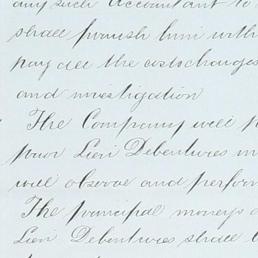 any such Accountant to
shall furnish him with
pay all the costs charges
and investigation
The Company will p
prior Lien Debentures in
will observe and perform
The principal moneys
Lien Debentures shall